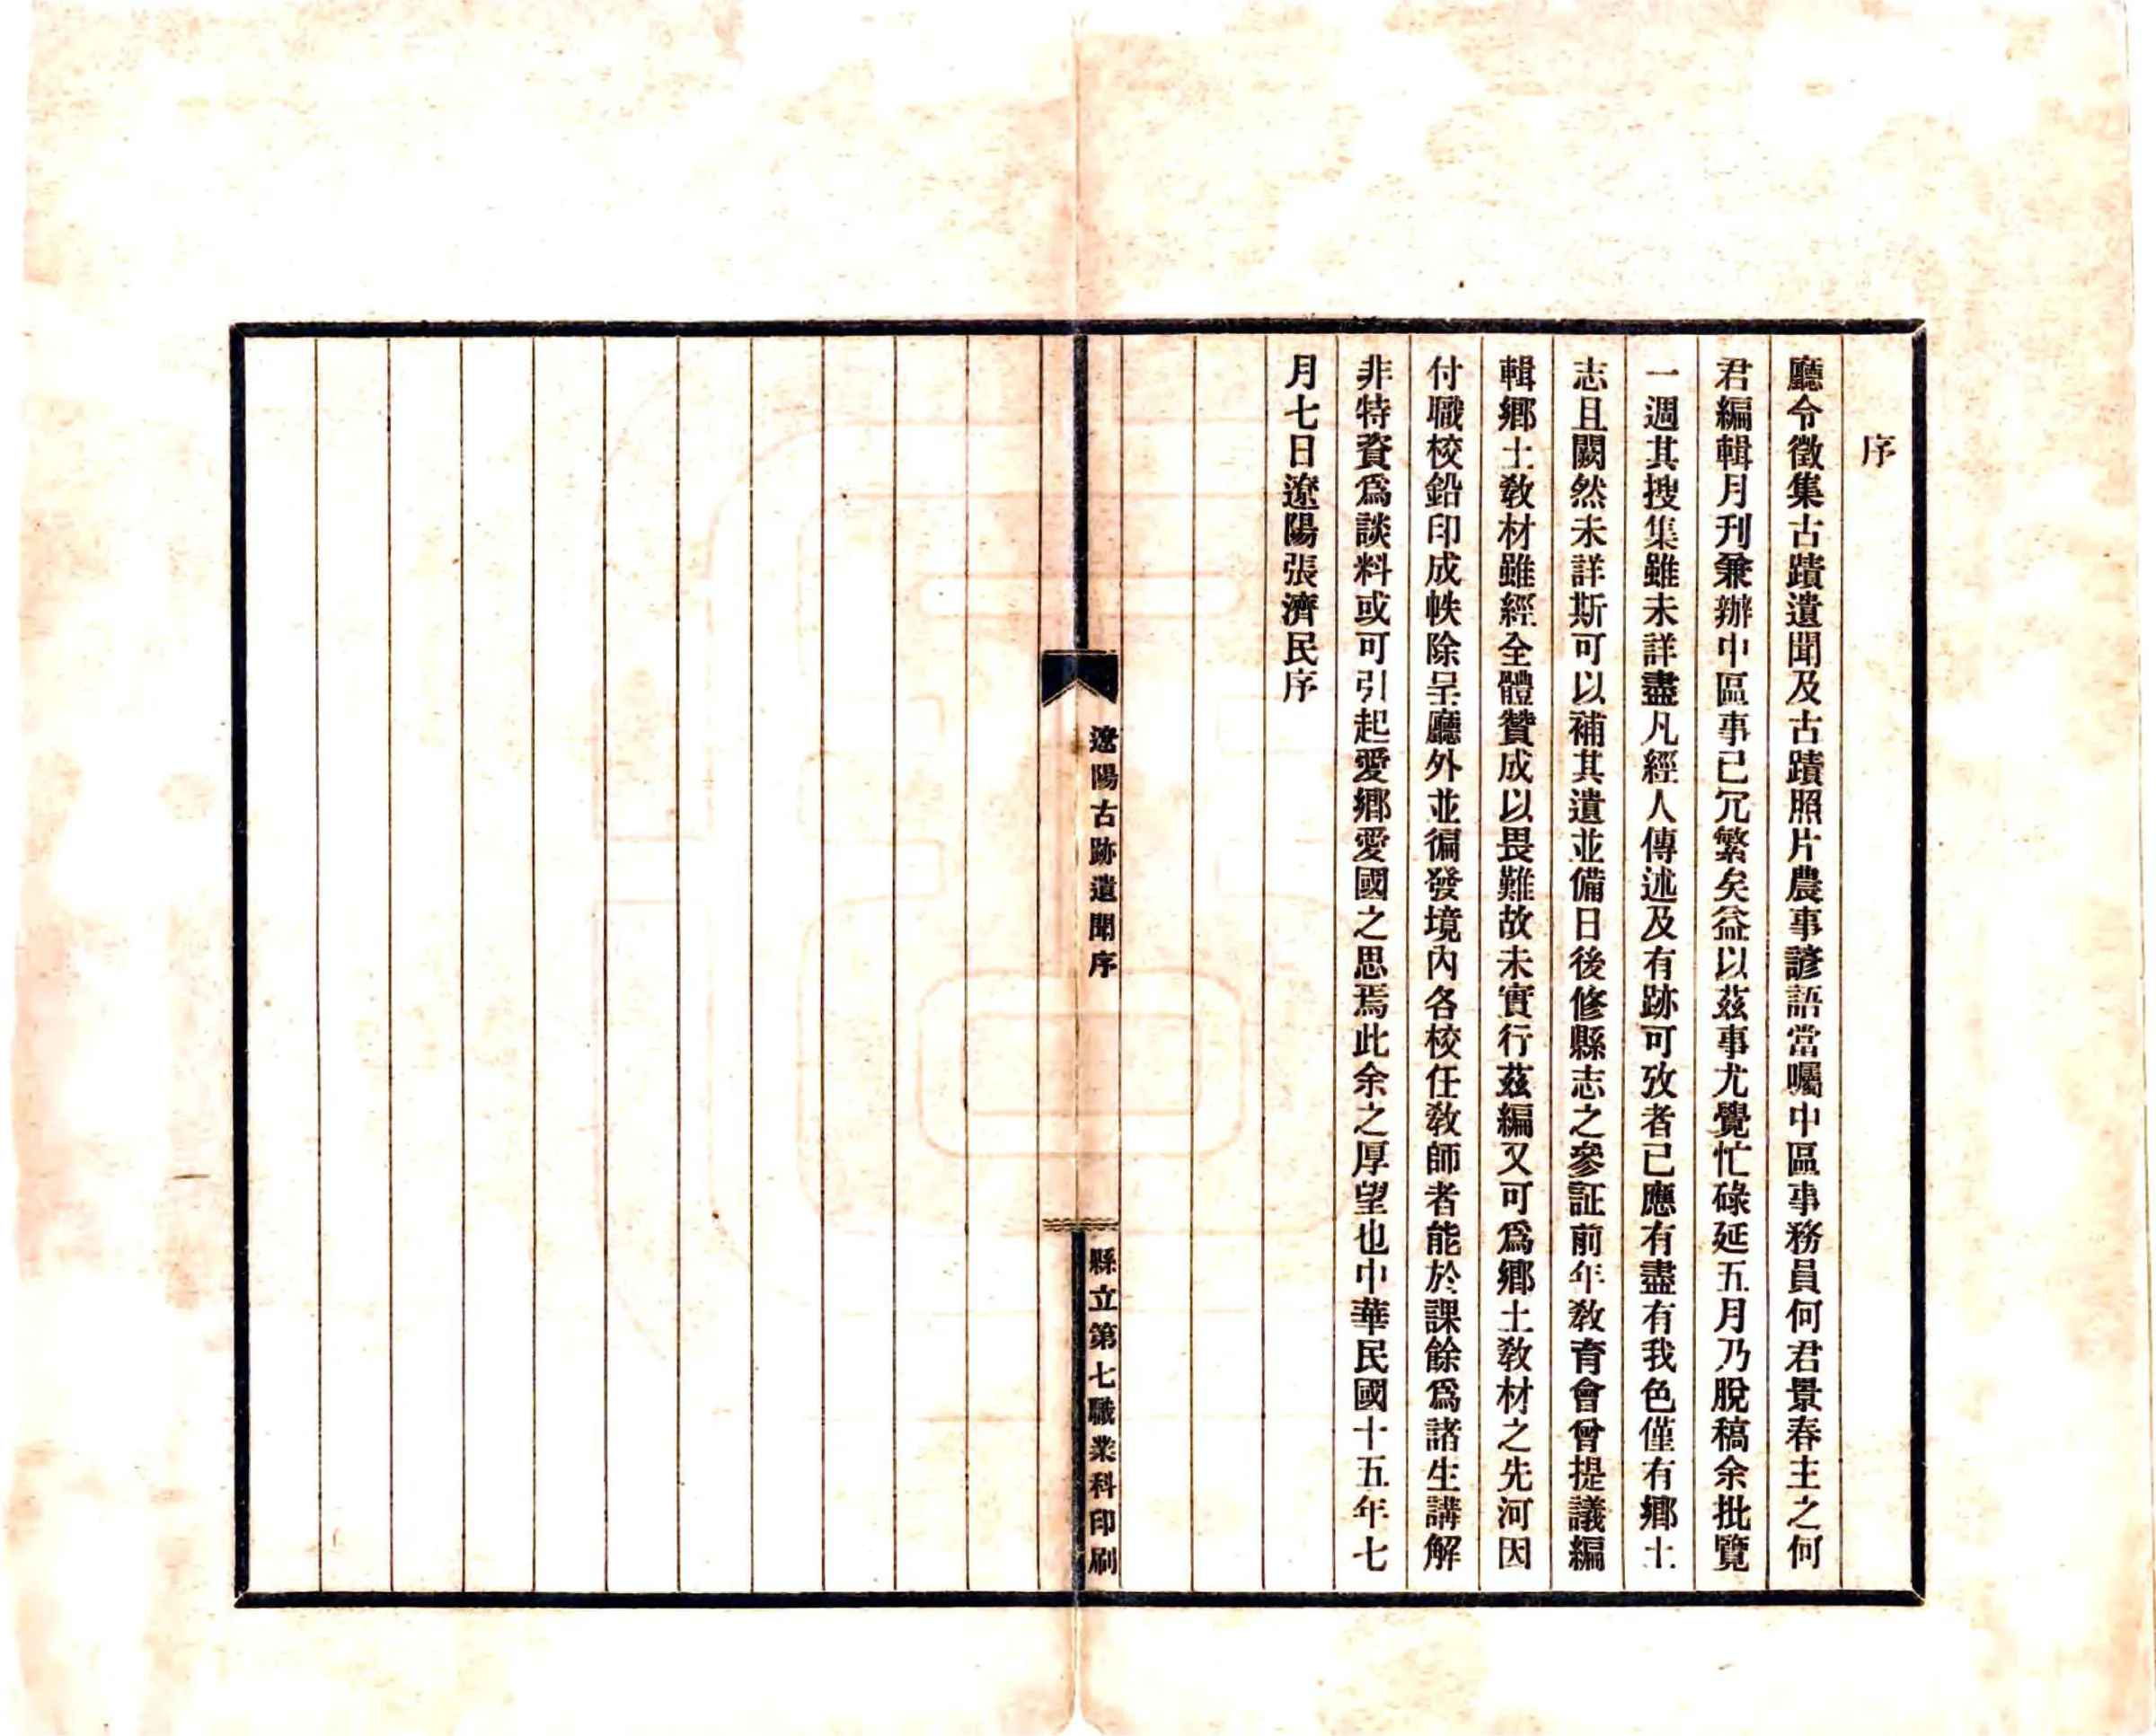 序
廳令徵集古蹟遺聞及古蹟照片農事諺語當囑中區事務員何君景春主之何
君編輯月刊兼辦中區事已冗繁矣益以茲事尤覺忙碌延五月乃脫稿余批覽
一週其搜集雖未詳盡凡經人傳述及有跡可攷者已應有盡有我色僅有鄉土
志且闕然未詳斯可以補其遺並備日後修縣志之參証前年敎育會曾提議編
輯鄉土敎材雖經全體贊成以畏難故未實行茲編又可爲鄉土敎材之先河因
付職校鉛印成帙除呈廳外並徧發境內各校任敎師者能於課餘爲諸生講解
非特資爲談料或可引起愛鄉愛國之思焉此余之厚望也中華民國十五年七
月七日遼陽張濟民序
遼陽古跡遺聞序
縣立第七職業科印刷